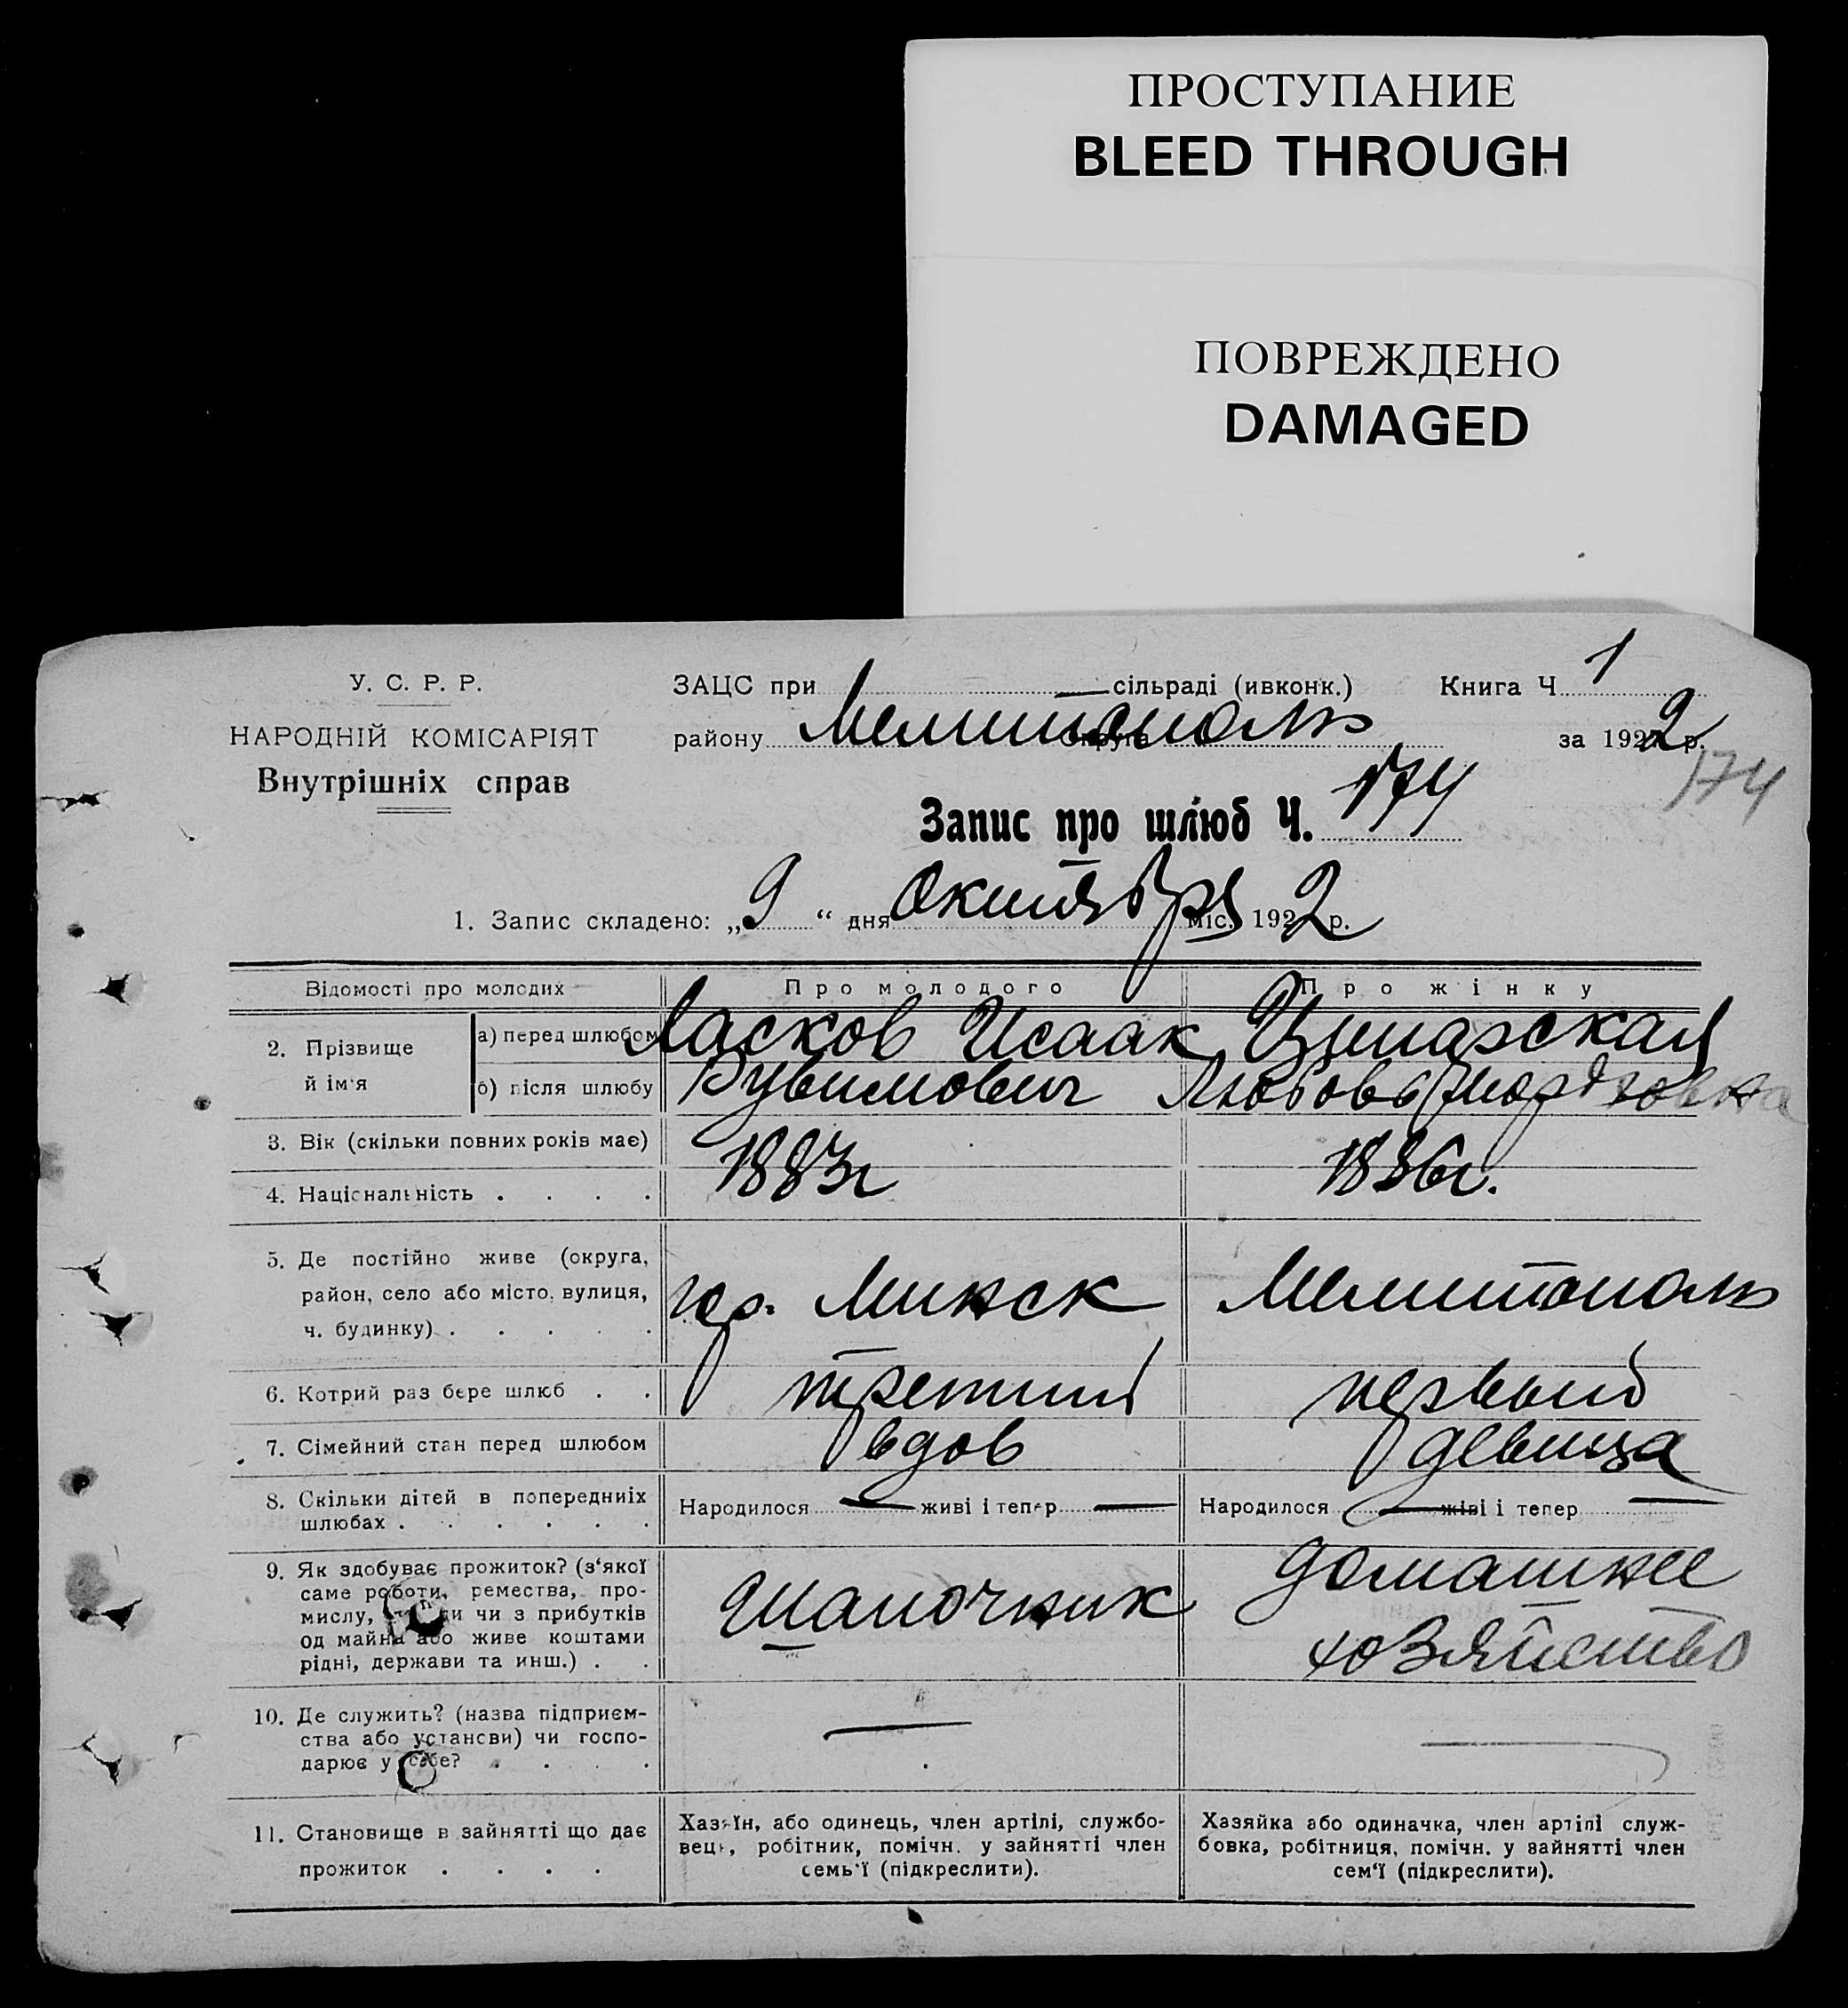 ПРОСТУПАНИЕ
BLEED THROUGH
ПОВРЕЖДЕНО
DAMAGED
У. С. Р. Р.
НАРОДНІЙ КОМІСАРІЯТ
Внутрішніх справ
ЗАЦС при — сільраді (ивконк.) Книга Ч. 1
району Мелитополь округа за 1922 р.
174
Запис про шлюб Ч. 174
1. Запис складено: „9“ дня Октября міс. 1922 р.
Відомості про молодих Про молодого Про жінку
2. Прізвище й ім'я
а) перед шлюбом Ласков Исаак
б) після шлюбу Рувимович Любовь
3. Вік (скільки повних років має) 1883г 1886г.
4. Національність . . . .
5. Де постійно живе (округа,
район, село або місто, вулиця,
ч. будинку) . . . . . .
гор. Минск Мелитополь
6. Котрий раз бере шлюб . . третий первый
7. Сімейний стан перед шлюбом вдов девица
8. Скільки дітей в попередниіх
шлюбах . . . . . .
Народилося — живі і тепер — Народилося — живі і тепер —
9. Як здобуває прожиток? (з'якої
саме роботи, ремества, про-
мислу, чи з прибутків
од майна або живе коштами
рідні, держави та инш.) . .
Шапочник домашнее
хозяйство
10. Де служить? (назва підприєм-
ства або установи) чи госпо-
дарює у себе? . . . .
— —
11. Становище в зайнятті що дає
прожиток . . . .
Хазяїн, або одинець, член артілі, службо-
вець, робітник, помічн. у зайнятті член
семь'ї (підкреслити).
Хазяйка або одиначка, член артілі служ-
бовка, робітниця, помічн. у зайнятті член
сем'ї (підкреслити).